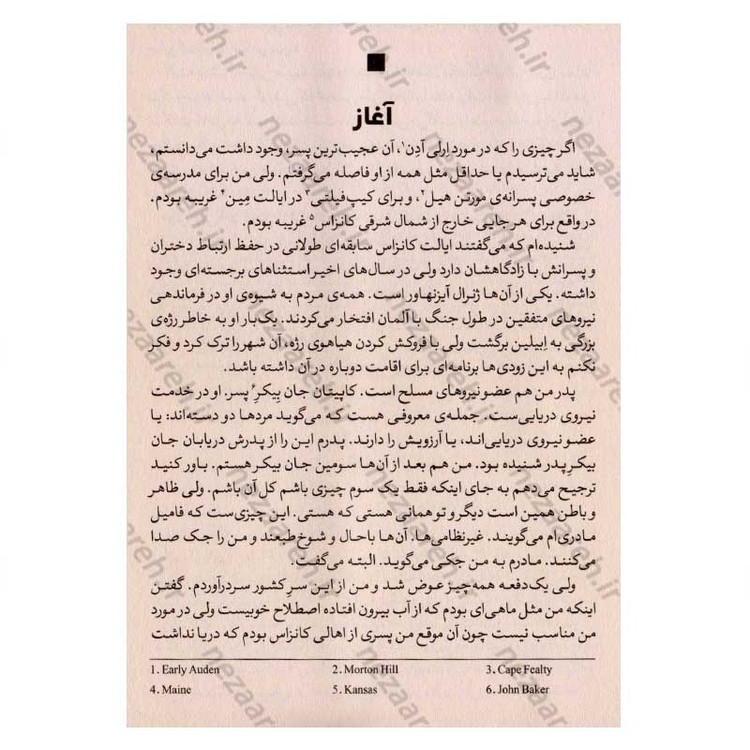 آغاز
اگر چیزی را که در مورد اِرلی آدِن۱، آن عجیب‌ترین پسر، وجود داشت می‌دانستم،
شاید می‌ترسیدم یا حداقل مثل همه از او فاصله می‌گرفتم. ولی من برای مدرسه‌ی
خصوصی پسرانه‌ی مورتن هیل۲، و برای کیپ‌فیلتی۳ در ایالت مِین۴ غریبه بودم.
در واقع برای هر جایی خارج از شمال شرقی کانزاس۵ غریبه بودم.
شنیده‌ام که می‌گفتند ایالت کانزاس سابقه‌ای طولانی در حفظ ارتباط دختران
و پسرانش با زادگاهشان دارد ولی در سال‌های اخیر استثناهای برجسته‌ای وجود
داشته. یکی از آن‌ها ژنرال آیزنهاور است. همه‌ی مردم به شیوه‌ی او در فرماندهی
نیروهای متفقین در طول جنگ با آلمان افتخار می‌کردند. یک‌بار او به خاطر رژه‌ی
بزرگی به اِبیلین برگشت ولی با فروکش کردن هیاهوی رژه، آن شهر را ترک کرد و فکر
نکنم به این زودی‌ها برنامه‌ای برای اقامت دوباره در آن داشته باشد.
پدر من هم عضو نیروهای مسلح است. کاپیتان جان بِیکر۶ پسر. او در خدمت
نیروی دریایی‌ست. جمله‌ی معروفی هست که می‌گوید مردها دو دسته‌اند: یا
عضو نیروی دریایی‌اند، یا آرزویش را دارند. پدرم این را از پدرش دریابان جان
بیکرِ پدر شنیده بود. من هم بعد از آن‌ها سومین جان بیکر هستم. باور کنید
ترجیح می‌دهم به جای اینکه فقط یک سوم چیزی باشم کل آن باشم. ولی ظاهر
و باطن همین است دیگر و تو همانی هستی که هستی. این چیزی‌ست که فامیل
مادری‌ام می‌گویند. غیرنظامی‌ها. آن‌ها باحال و شوخ‌طبعند و من را جک صدا
می‌کنند. مادرم به من جکی می‌گوید. البته می‌گفت.
ولی یک‌دفعه همه‌چیز عوض شد و من از این سرِ کشور سردرآوردم. گفتن
اینکه من مثل ماهی‌ای بودم که از آب بیرون افتاده اصطلاح خوبیست ولی در مورد
من مناسب نیست چون آن موقع من پسری از اهالی کانزاس بودم که دریا نداشت
1. Early Auden 2. Morton Hill 3. Cape Fealty
4. Maine 5. Kansas 6. John Baker
nezaareh.ir